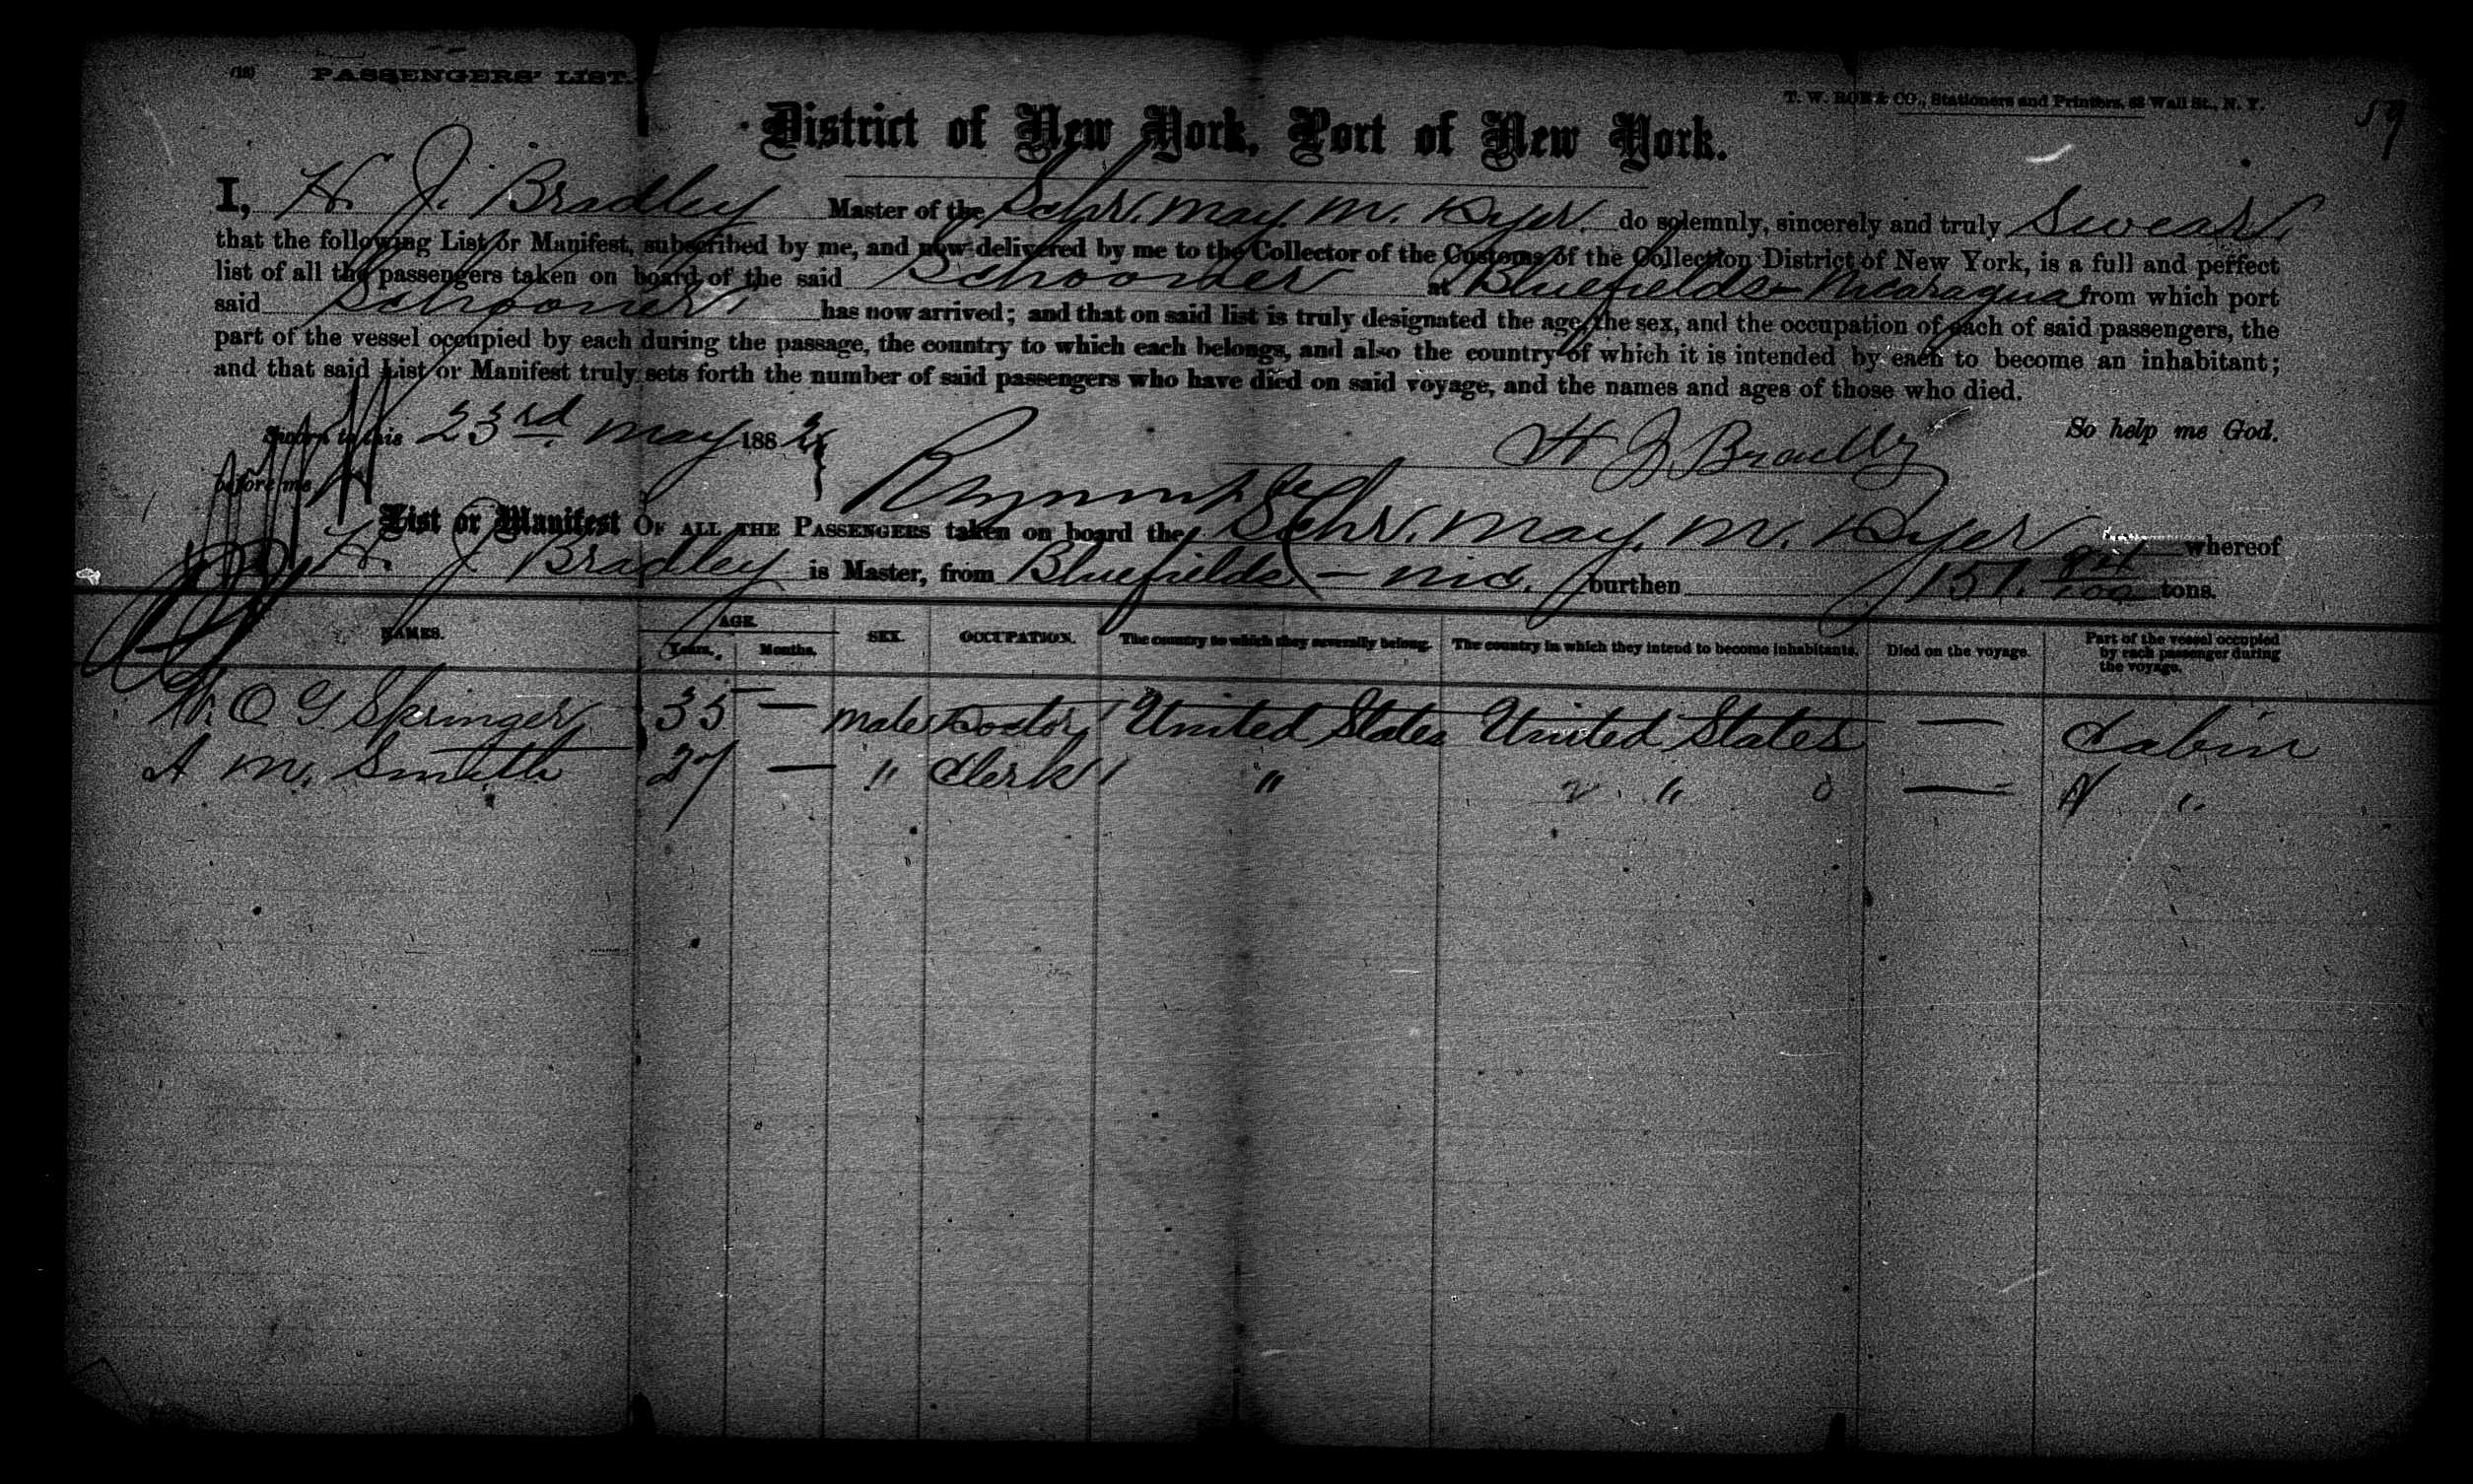 (18) PASSENGERS' LIST.
T. W. ROE & CO., Stationers and Printers, 63 Wall St., N. Y.
59
District of New York, Port of New York.
I, H. J. Bradley Master of the Schr. May. M. Dyer. do solemnly, sincerely and truly Swear.
that the following List or Manifest, subscribed by me, and now delivered by me to the Collector of the Customs of the Collection District of New York, is a full and perfect
list of all the passengers taken on board of the said Schooner at Bluefields - Nicaragua from which port
said Schooner. has now arrived; and that on said list is truly designated the age, the sex, and the occupation of each of said passengers, the
part of the vessel occupied by each during the passage, the country to which each belongs, and also the country of which it is intended by each to become an inhabitant;
and that said List or Manifest truly sets forth the number of said passengers who have died on said voyage, and the names and ages of those who died.
So help me God.
Sworn to this 23rd May 188
H J Bradley
before me
List or Manifest OF ALL THE PASSENGERS taken on board the Schr. May. M. Dyer whereof
H. J Bradley is Master, from Bluefields - Nic. burthen 157. 84/100 tons.
NAMES. AGE. Years. Months. SEX. OCCUPATION. The country to which they severally belong. The country in which they intend to become inhabitants. Died on the voyage. Part of the vessel occupied by each passenger during the voyage.
O G Springer 35 — Male Doctor United States United States — Cabin
A M. Smith 27 — " Clerk " " — "